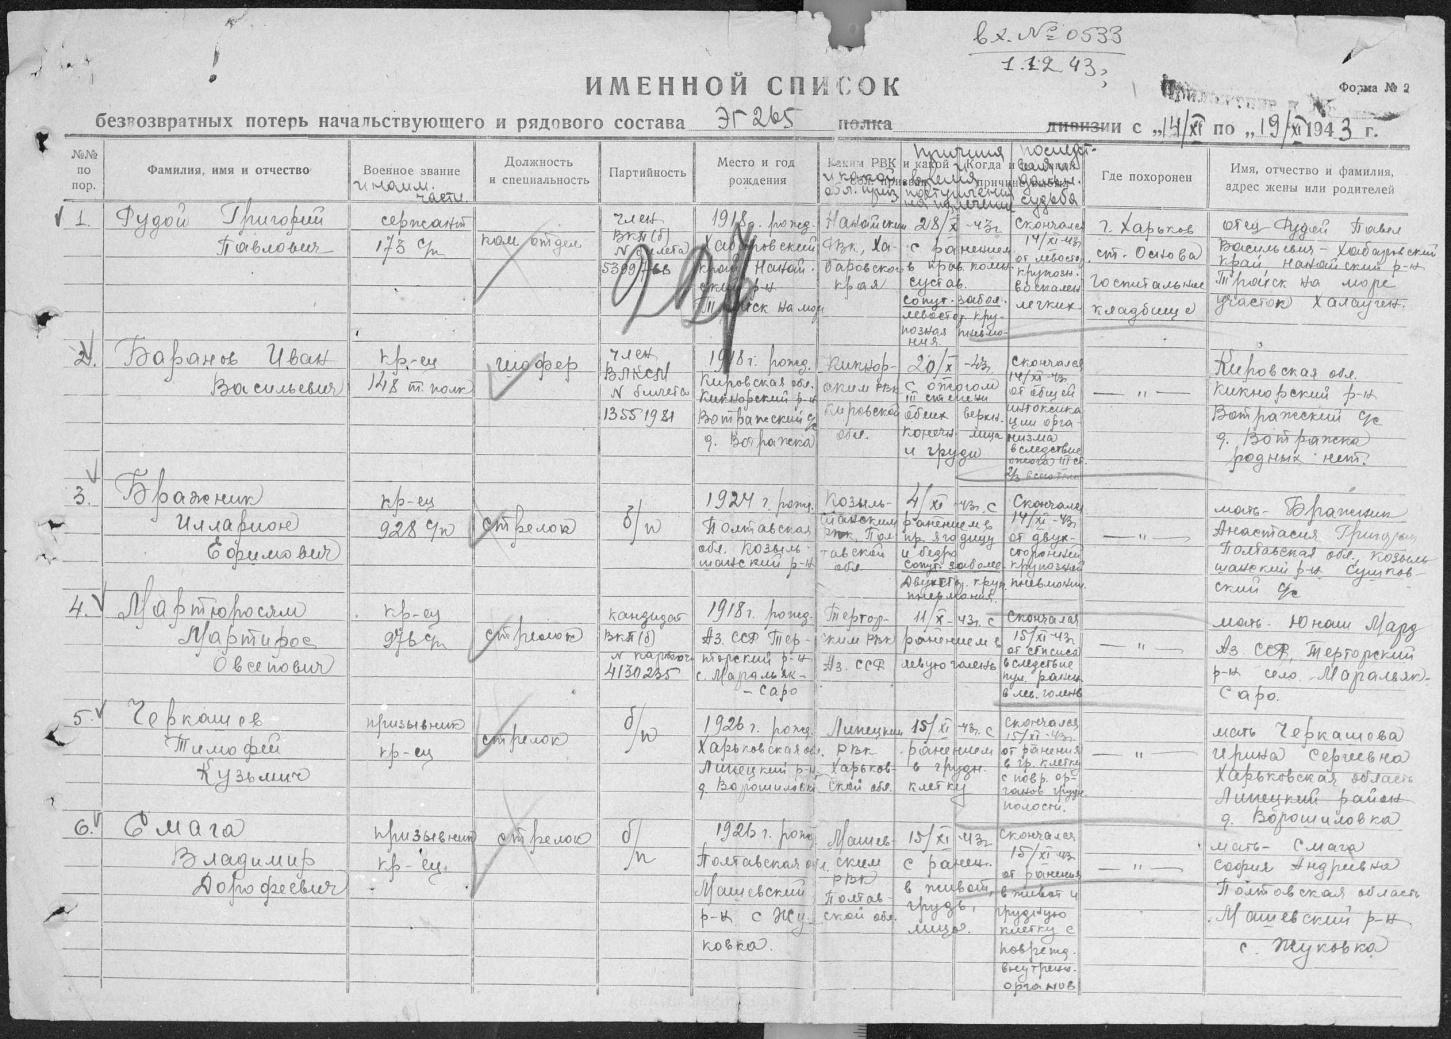 вх. № 0533
1.12 43г
Форма № 2
ИМЕННОЙ СПИСОК
Приложение к
безвозвратных потерь начальствующего и рядового состава ЭГ 265 полка дивизии с „14/XI по „19/XI 1943 г.
№№ по пор.
Фамилия, имя и отчество
Военное звание
и наим. части.
Должность и специальность
Партийность
Место и год рождения
Каким РВК и какой
и какой обл. призв.
Причина и время поступления на лечение
Когда и
последст-
судьба
Где похоронен
Имя, отчество и фамилия, адрес жены или родителей
1. Рудой Григорий
Павлович
сержант
173 с/п
ком. отдел
член
ВКП(б)
N билета
1918г. рожд.
Хабаровский
край Нанай-
ский р-н
Троицк на море
Нанайским
РВК, Ха-
баровского
края
28/X-43г.
с ранением
в прав. колен.
сустав.
сопут. забол.
левостор. кру-
позная пневмо-
ния.
Скончался
14/XI-43г.
от левостор.
крупозн.
воспален.
легких
г. Харьков
ст. Основа
Госпитальное
кладбище
отец Рудой Павел
Васильевич - Хабаровский
край Нанайский р-н
Троицк на море
участок Халауген.
227
2. Баранов Иван
Васильевич
кр-ец
148 т. полк
шофер
член
ВЛКСМ
N билета
1355 1981
1918г. рожд.
Кировская обл.
Кикнорский р-н
Вотражский с/с
д. Вотражка
Кикнор-
ским РВК
Кировской
обл.
20/X-43г.
с ожогом
III степени
обеих верхн.
конечн. лица
и груди
Скончался
14/XI-43г.
от общей
интоксика-
ции орга-
низма
вследствие
ожога III ст.
— " —
Кировская обл.
Кикнорский р-н
Вотражский с/с
д. Вотражка
родных нет.
3. Бражник
Илларион
Ефимович
кр-ец
928 с/п
стрелок
б/п
1924 г. рожд.
Полтавская
обл. Козель-
щанский р-н
Козель-
щанским
РВК. Пол-
тавской
обл
4/XI-43г. с
ранением в
пр. ягодицу
и бедро
сопут. заболе.
двухст. круп.
пневмония.
Скончался
14/XI-43г.
от двух-
сторонней
крупозной
пневмонии.
— " —
мать- Бражник
Анастасия Григор.
Полтавская обл. Козель-
щанский р-н Сушков-
ский с/с
4. Мартюросям
Мартирос
Овсепович
кр-ец
976 с/п
стрелок
кандидат
ВКП(б)
4130235
1918г. рожд.
Аз. ССР Тер-
торский р-н
с. Маральян-
- Саро
Тертор-
ским РВК
Аз. ССР
11/X-43г. с
ранением в
левую голень
Скончался
15/XI-43г.
от сепсиса
вследствие
пул. ранен.
в лев. голень
— " —
мать- Юнаш Мард
Аз. ССР, Терторский
р-н село Маральян-
Саро.
5. Черкашев
Тимофей
Кузьмич
призывник
кр-ец
стрелок
б/п
1926г. рожд.
Харьковская обл.
Липецкий р-н
д. Ворошиловк
Липецким
РВК
Харьков-
ской обл.
15/XI-43г. с
ранением
в грудн.
клетку
Скончался
15/XI-43г.
от ранения
в гр. клетку
с повр. ор-
ганов грудн.
полости.
— " —
мать Черкашова
Ирина Сергеевна
Харьковская область
Липецкий район
д. Ворошиловка
6. Смага
Владимир
Дорофеевич
призывник
кр-ец.
стрелок
б/п
1926г. рожд
Полтавская обл.
Машевский
р-н с Жу-
ковка.
Машев-
ским
РВК
Полтав-
ской обл.
15/XI-43г.
с ранен.
в живот,
грудь,
лицо.
Скончался
15/XI-43г.
от ранения
в живот и
грудную
клетку с
поврежд.
внутренн.
органов
— " —
мать- Смага
София Андреевна
Полтовская область
Машевский р-н
с. Жуковка